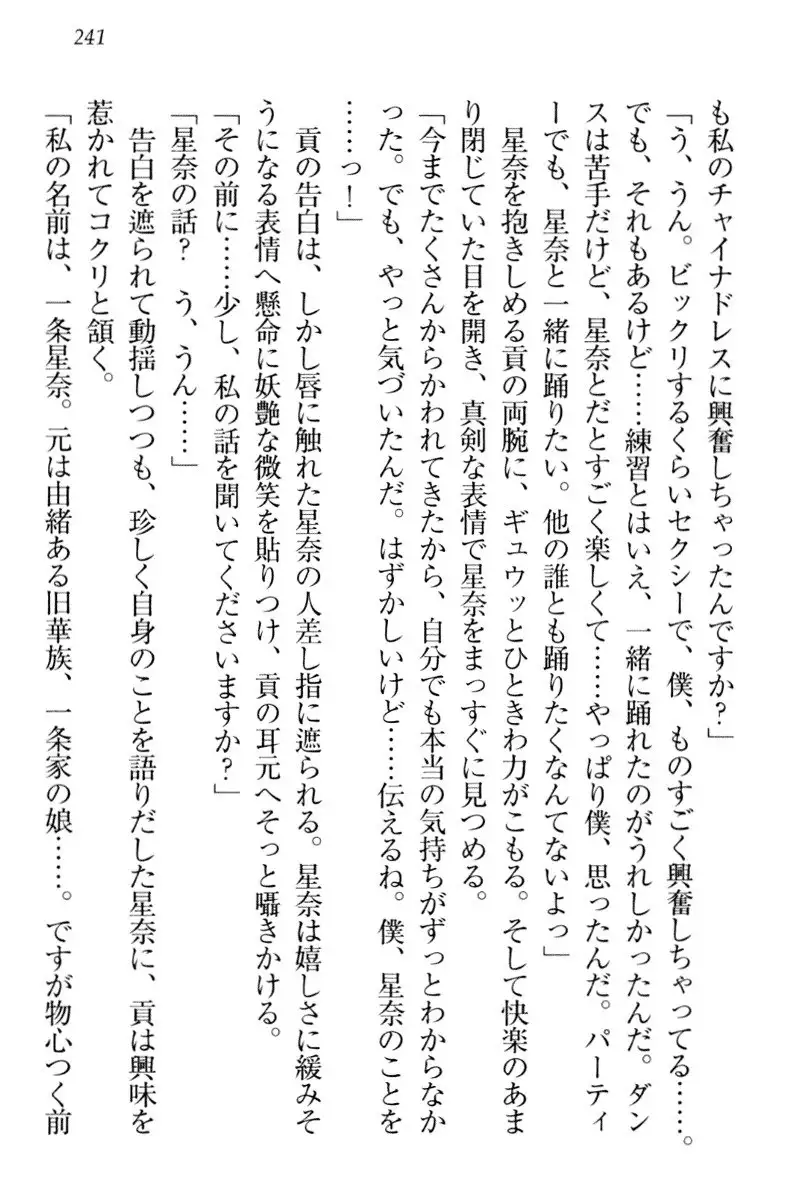 241
も私のチャイナドレスに興奮しちゃったんですか？」
「う、うん。ビックリするくらいセクシーで、僕、ものすごく興奮しちゃってる……。
でも、それもあるけど……練習とはいえ、一緒に踊れたのがうれしかったんだ。ダン
スは苦手だけど、星奈とだとすごく楽しくて……やっぱり僕、思ったんだ。パーティ
ーでも、星奈と一緒に踊りたい。他の誰とも踊りたくなんてないよっ」
　星奈を抱きしめる貢の両腕に、ギュウッとひときわ力がこもる。そして快楽のあま
り閉じていた目を開き、真剣な表情で星奈をまっすぐに見つめる。
「今までたくさんからかわれてきたから、自分でも本当の気持ちがずっとわからなか
った。でも、やっと気づいたんだ。はずかしいけど……伝えるね。僕、星奈のことを
……っ！」
　貢の告白は、しかし唇に触れた星奈の人差し指に遮られる。星奈は嬉しさに緩みそ
うになる表情へ懸命に妖艶な微笑を貼りつけ、貢の耳元へそっと囁きかける。
「その前に……少し、私の話を聞いてくださいますか？」
「星奈の話？　う、うん……」
　告白を遮られて動揺しつつも、珍しく自身のことを語りだした星奈に、貢は興味を
惹かれてコクリと頷く。
「私の名前は、一条星奈。元は由緒ある旧華族、一条家の娘……。ですが物心つく前